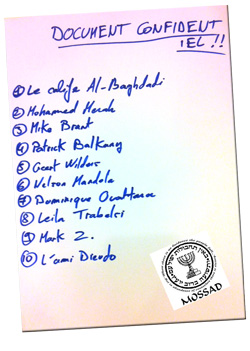 DOCUMENT CONFIDENT
IEL !!
1 Le calife Al-Baghdadi
2 Mohamed Merah
3 Mike Brant
4 Patrick Balkany
5 Geert Wilders
6 Nelson Mandela
7 Dominique Ouattara
8 Leila Trabelsi
9 Mark Z.
10 L'ami Dieudo
MOSSAD